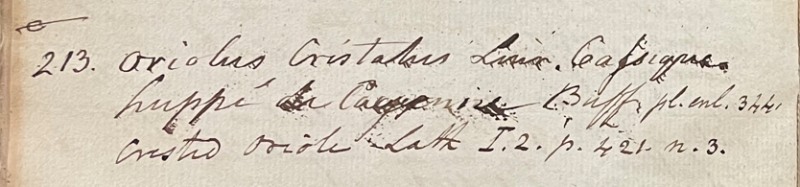 213. Oriolus Cristatus Linn. Cassique
huppé de Cayenne Buff. pl. enl. 344.
crested Oriole Lath I. 2. p. 421. n. 3.